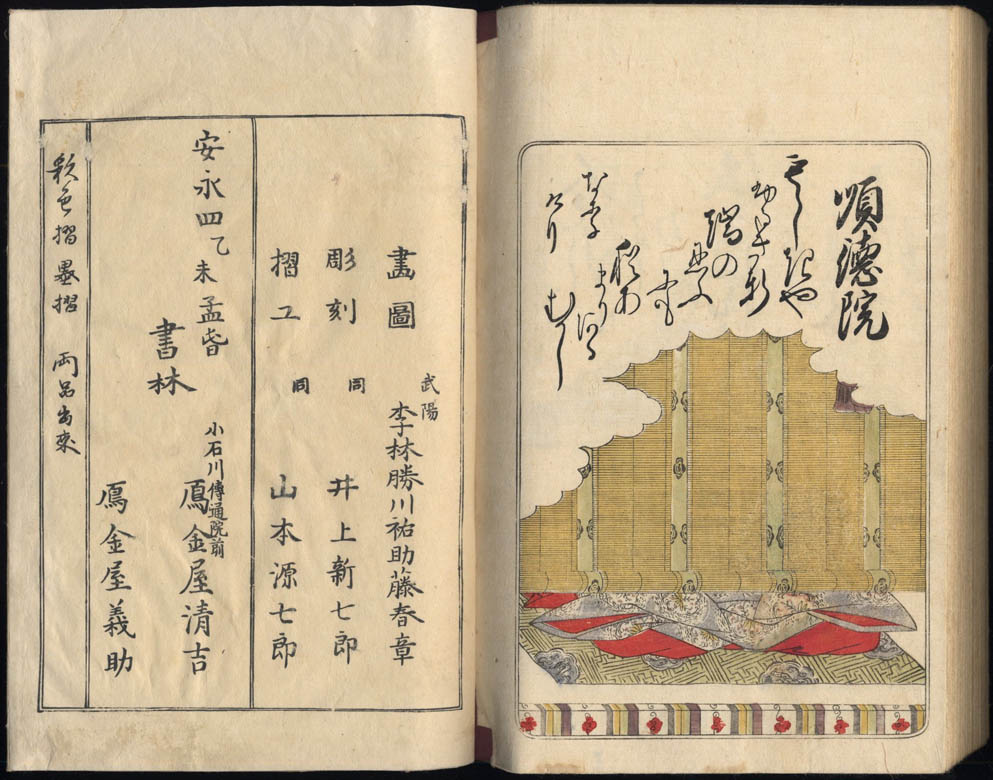 順德院
もゝしきや
ふるき軒
端の
忍ふ
にも
猶あ
まりある
むかし
なり
けり
畫圖 武陽 李林勝川祐助藤春章
彫刻 同 井上新七郎
摺工 同 山本源七郎
安永四乙未孟旾
書林 小石川傳通院前 鴈金屋清吉
鴈金屋義助
彩色摺墨摺 両品出来